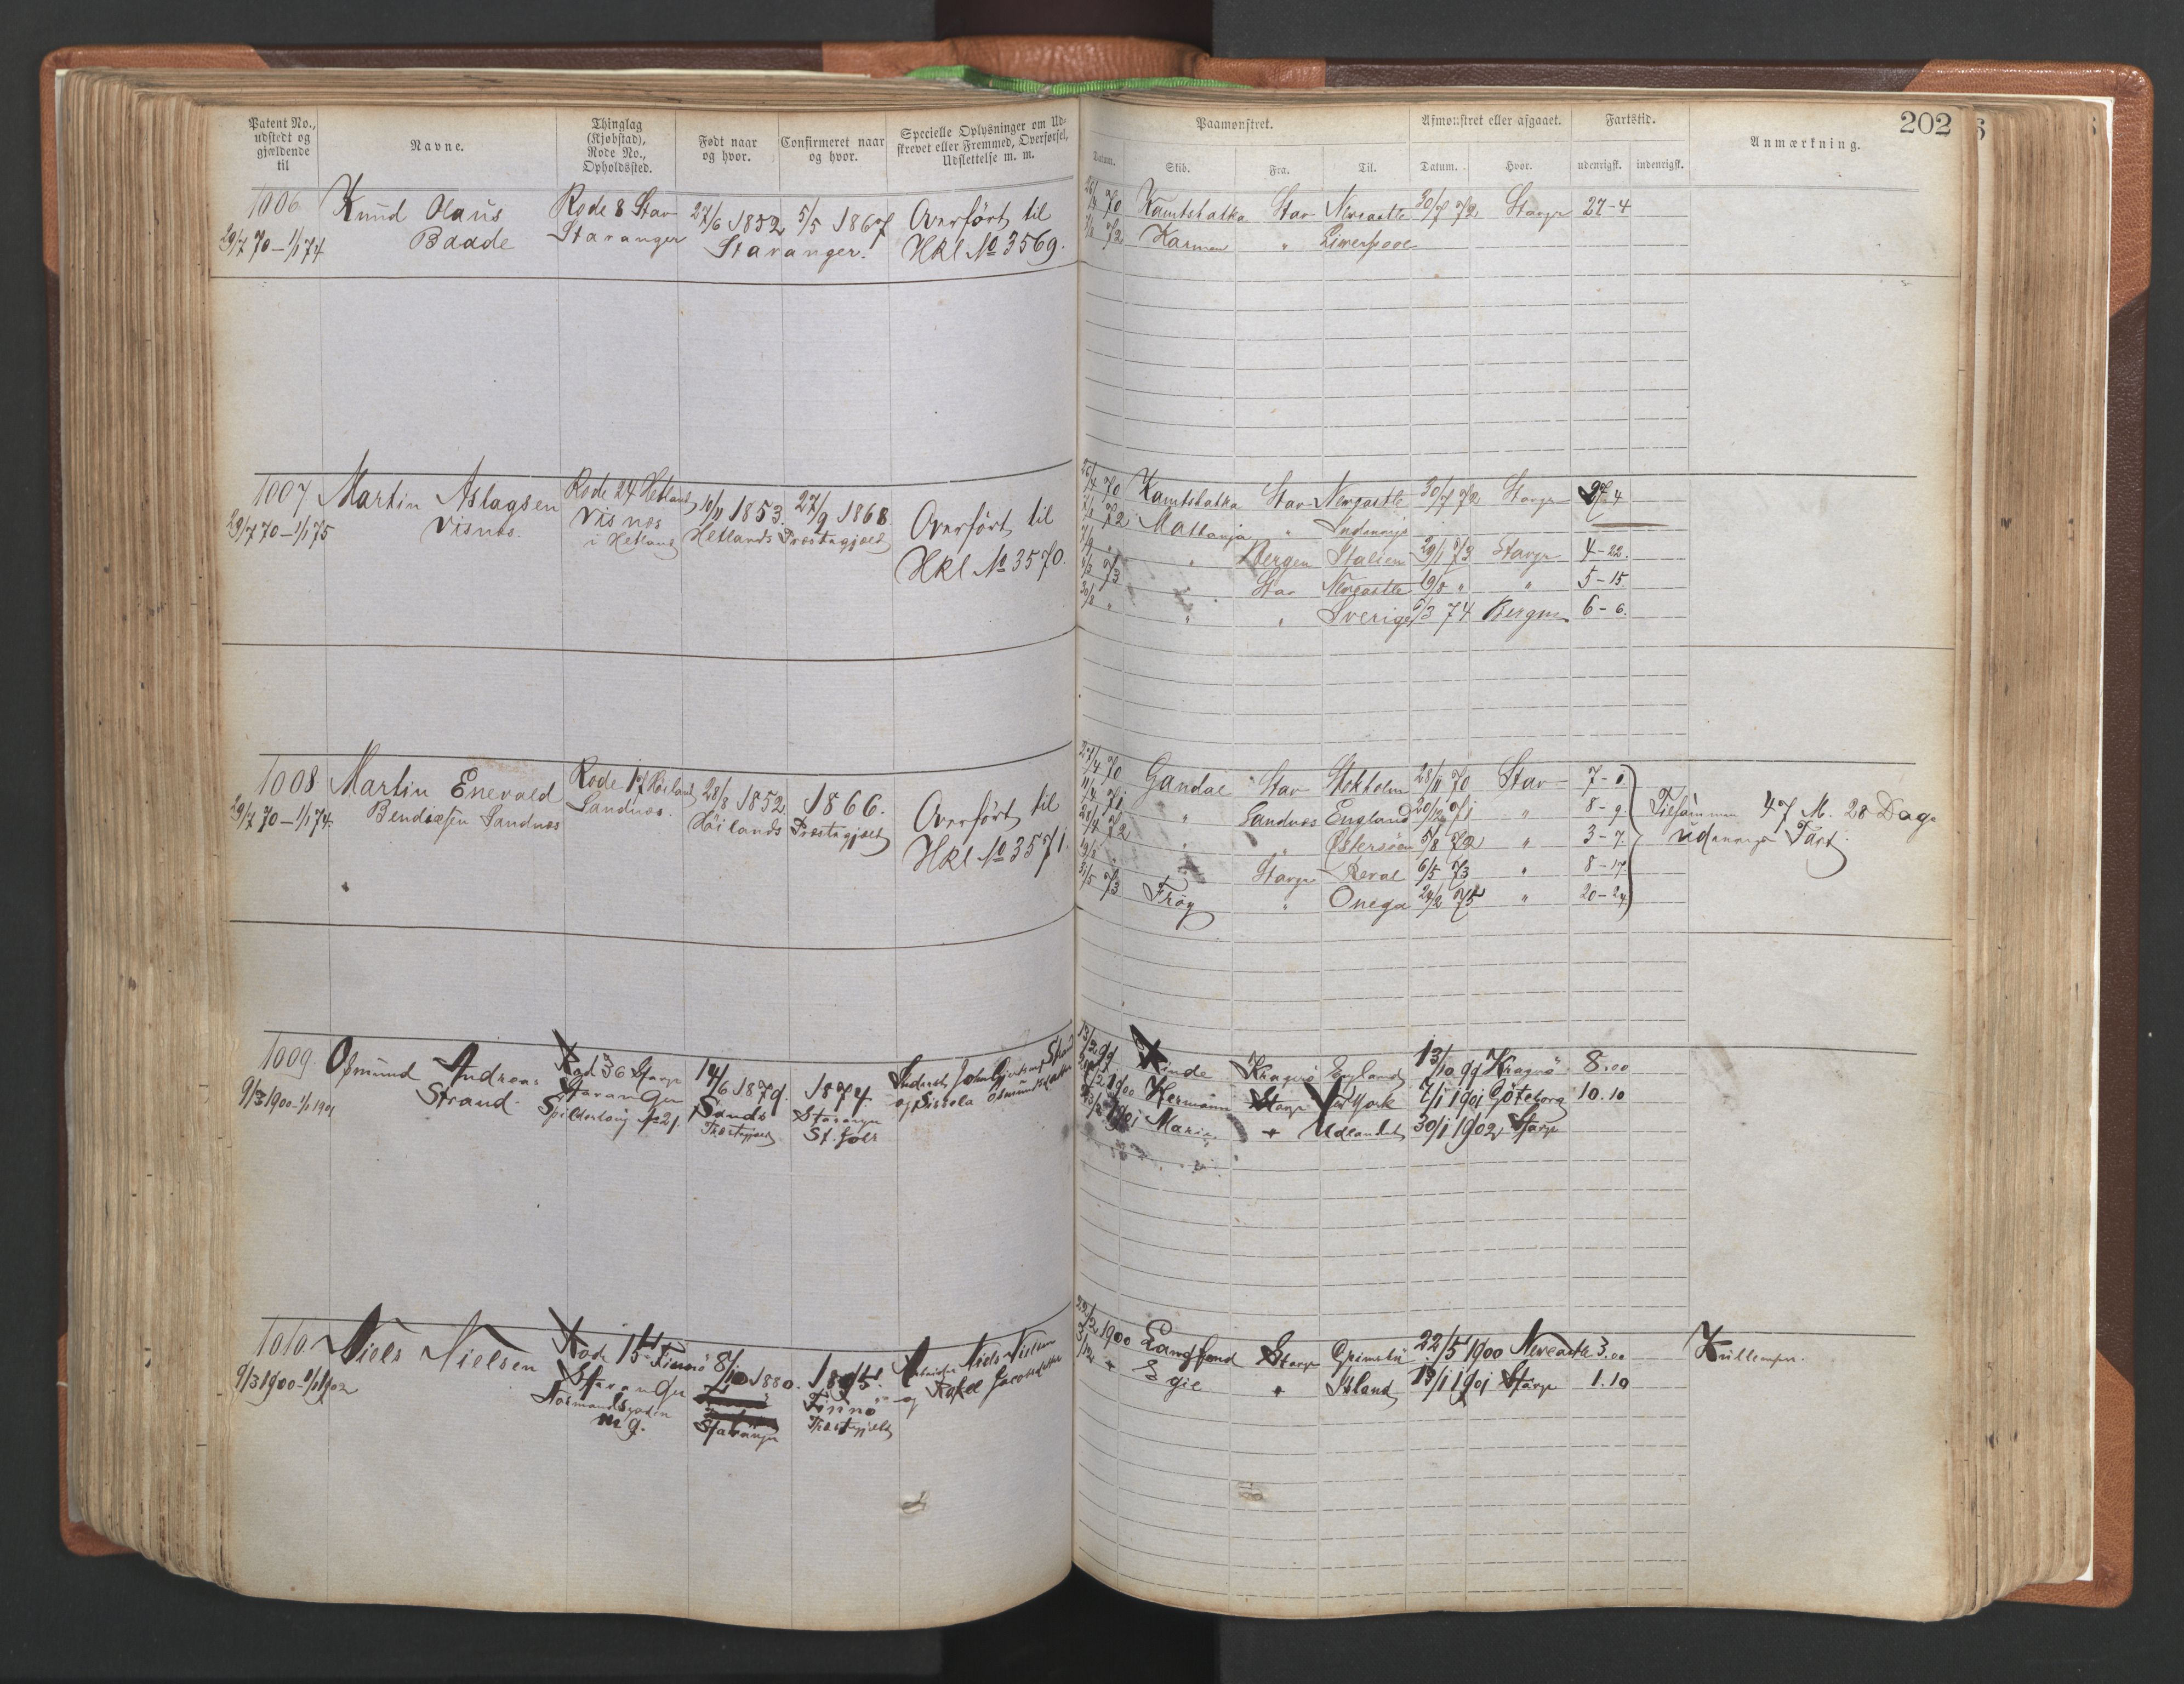 202
Patent No., udstedt og gjældende til
Navne.
Thinglag (Kjøbstad), Rode No., Opholdssted.
Født naar og hvor.
Confirmeret naar og hvor.
Specielle Oplysninger om Udskrevet eller Fremmed, Overførsel, Udslettelse m. m.
Paamønstret.
Datum. Skib. Fra. Til.
Afmønstret eller afgaaet.
Datum. Hvor.
Fartstid.
udenrigsk. indenrigsk.
Anmærkning.
1006
29/7 70 – 1/1 74
Knud Olaus
Baade
Rode 8 Stav
Stavanger
27/6 1852
Stavanger.
5/5 1867
Overført til
Hkl № 3569.
26/4 70 Kamtskatka Stav Newcastle 30/7 72 Stavgr 27-4
72 Karmøn " Liverpool
1007
29/7 70 – 1/1 75
Martin Aslagsen
Visnæs.
Rode 24 Hetland
Visnæs
i Hetland
10/11 1853.
Hetlands
27/9 1868
Præstegjæld
Overført til
Hkl № 3570.
26/4 70 Kamtskatka Stav Newcastle 30/7 72 Stavgr 27-4
72 Mattanja " Indenrigs
" Bergen Italien 29/1 73 Stavgr 4-22.
73 Stav Newcastle 19/8 " " 5-15
30/8 " " " Sverige /3 74 Bergen 6-6.
1008
29/7 70 – 1/1 74.
Martin Enevald
Bendixsen Sandnæs
Rode 17 Høiland
Sandnæs.
28/8 1852
Höilands
1866.
Præstegjæld
Overført til
Hkl № 3571.
27/4 70 Gandal Stav Stokholm 28/11 70 Stav 7-1
11/4 71 " Sandnæs England 20/12 71 " 8-9
28/4 72 " " Østersøen 5/8 72 " 3-7.
Stavgr Reval 6/5 73 " 8-17.
31/5 73 Frøy " Onega 24/2 75 " 20-24.
Tilsammen 47 M. 28 Dage
Udenrigs Fart.
1009.
9/3 1900 – 1/1 1901
Osmund Andreas
Strand.
Rode 36 Stavgr
Stavanger
Spilderhaug № 21.
14/6 1879.
Sands
Præstegjæld
1894
Stavanger
St. Joh
Strand
og Sissela Osmundsdatter
13/2 99 Kragerø England 13/10 99 Kragerø 8.00
1900 Hermann Stavgr New York 7/1 1901 Göteborg 10.10
1901 Maria " Udlandet 30/1 1902 Stavgr
1010.
9/3 1900 – 1/1 1902
Niels Nielsen
Rode 15 Finnø
Stavanger
Normandsgaden
m 9.
8/10 1880.
Stavanger
1895.
Finnø
Præstegjæld
Niels Nielsen
og Rakel Jacobsdatter
22/2 1900 Langfond Stavgr Grimsby 22/5 1900 Newcastle 3.00
Egil " Island 19/1 1901 Stavgr 1.10